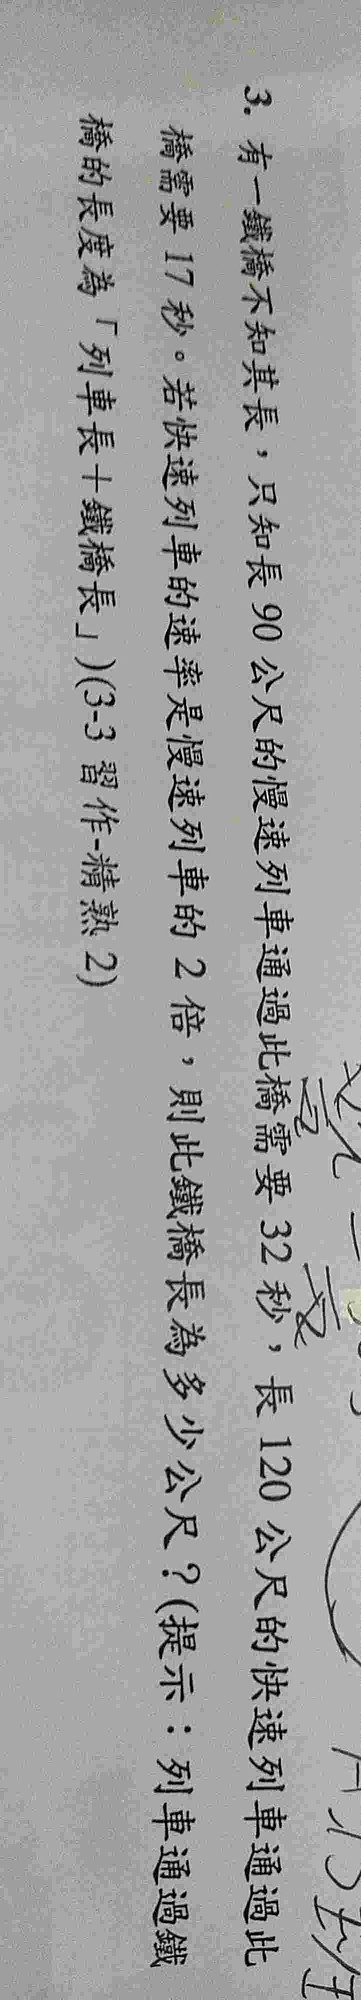 3. 有一鐵橋不知其長，只知長 90 公尺的慢速列車通過此橋需要 32 秒，長 120 公尺的快速列車通過此
橋需要 17 秒。若快速列車的速率是慢速列車的 2 倍，則此鐵橋長為多少公尺？(提示：列車通過鐵
橋的長度為「列車長＋鐵橋長」)(3-3 習作-精熟 2)